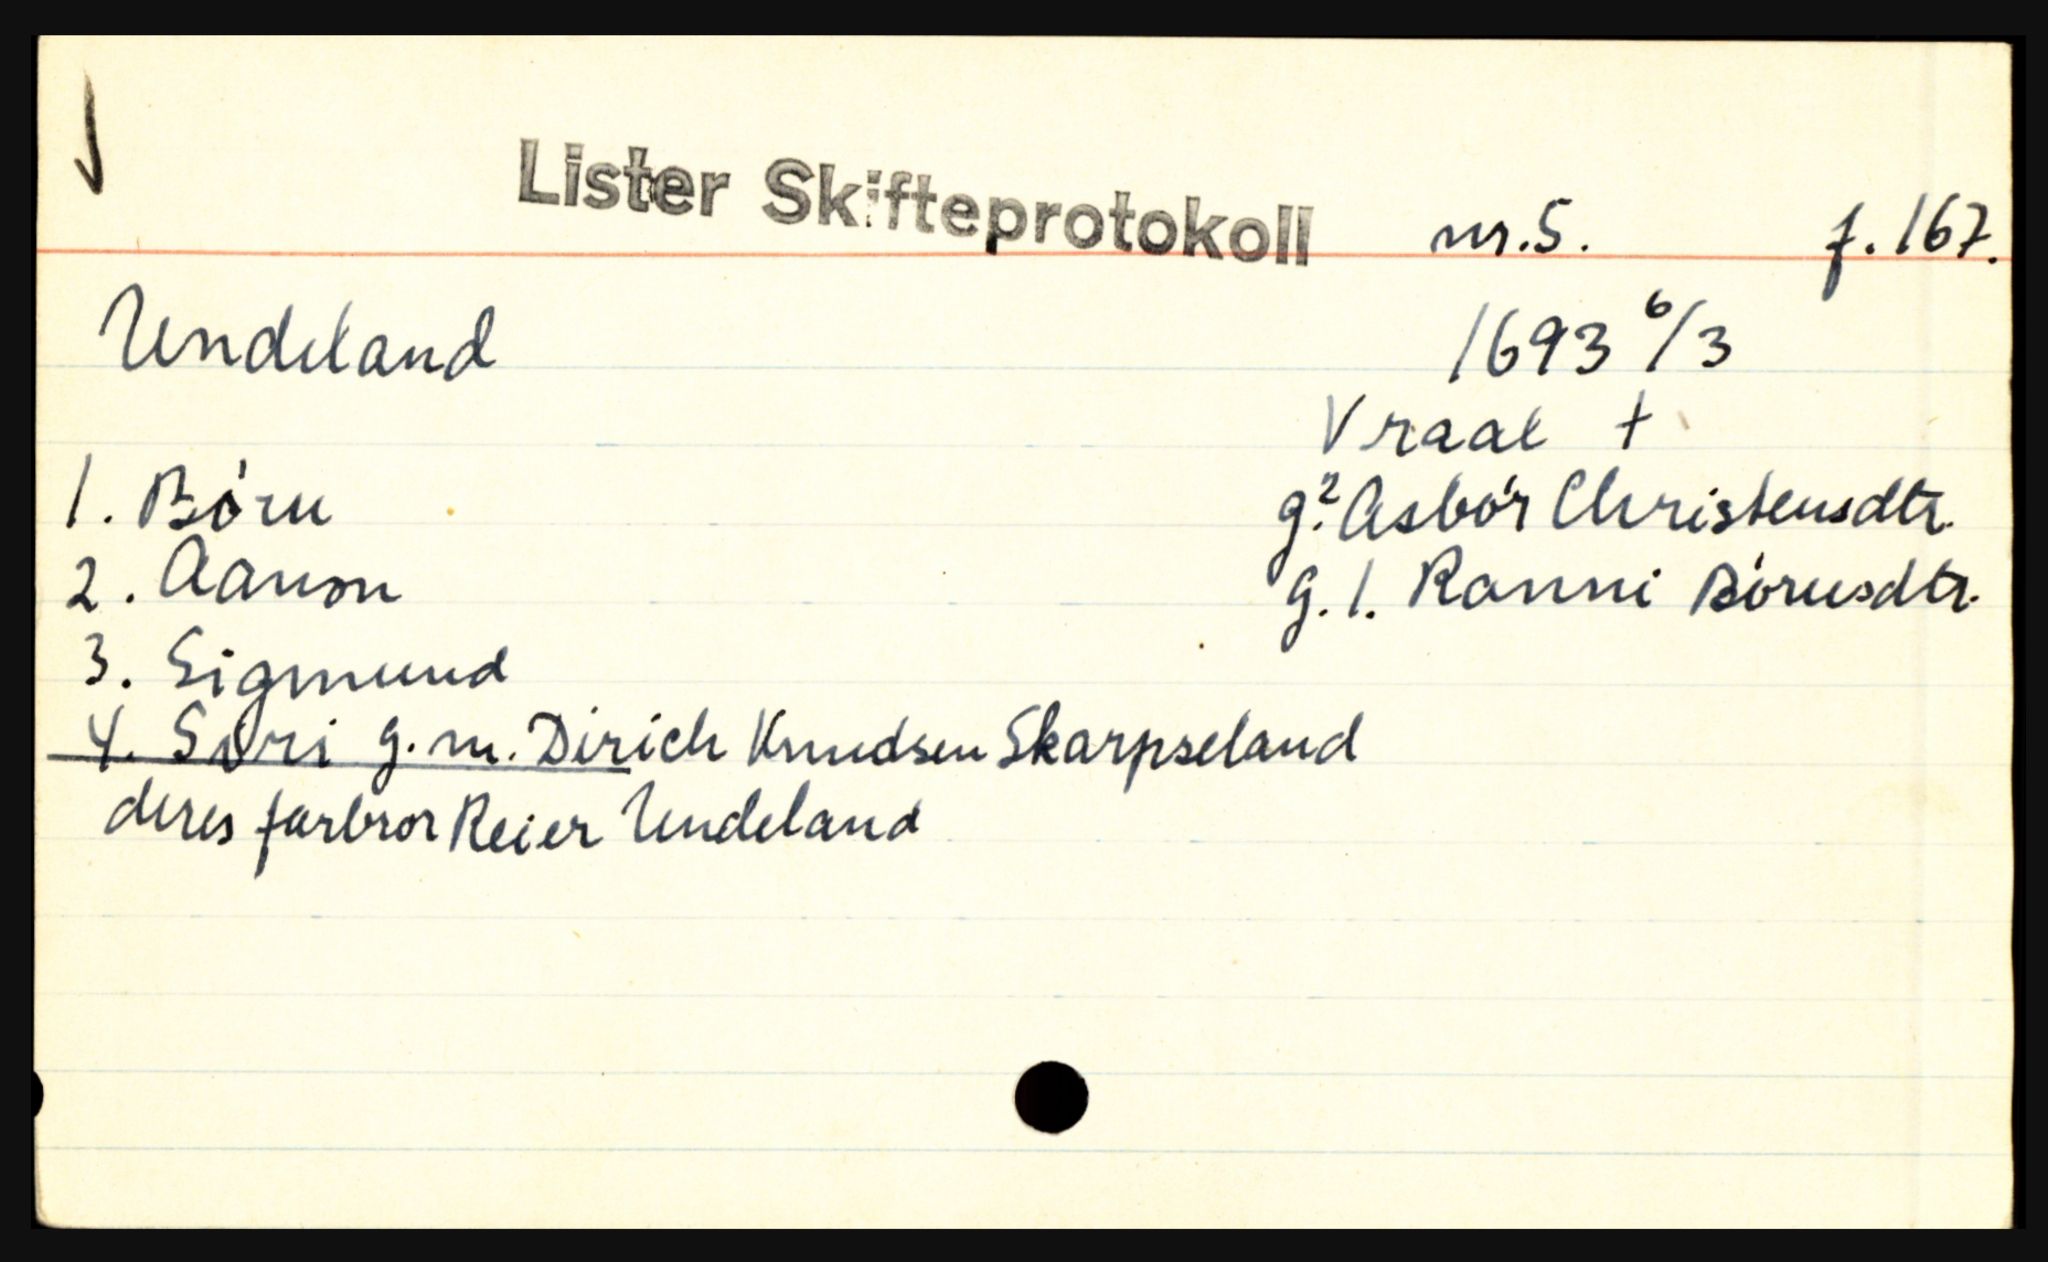 Lister Skifteprotokoll nr.5. f.167.
Undeland 1693 6/3
Vraal †
1. Böru g.2 Asbör Christensdtr.
2. Aanon g.1. Ranni Börusdtr.
3. Sigmund
4. Siri g.m. Dirich Knudsen Skarpseland
deres farbror Reier Undeland